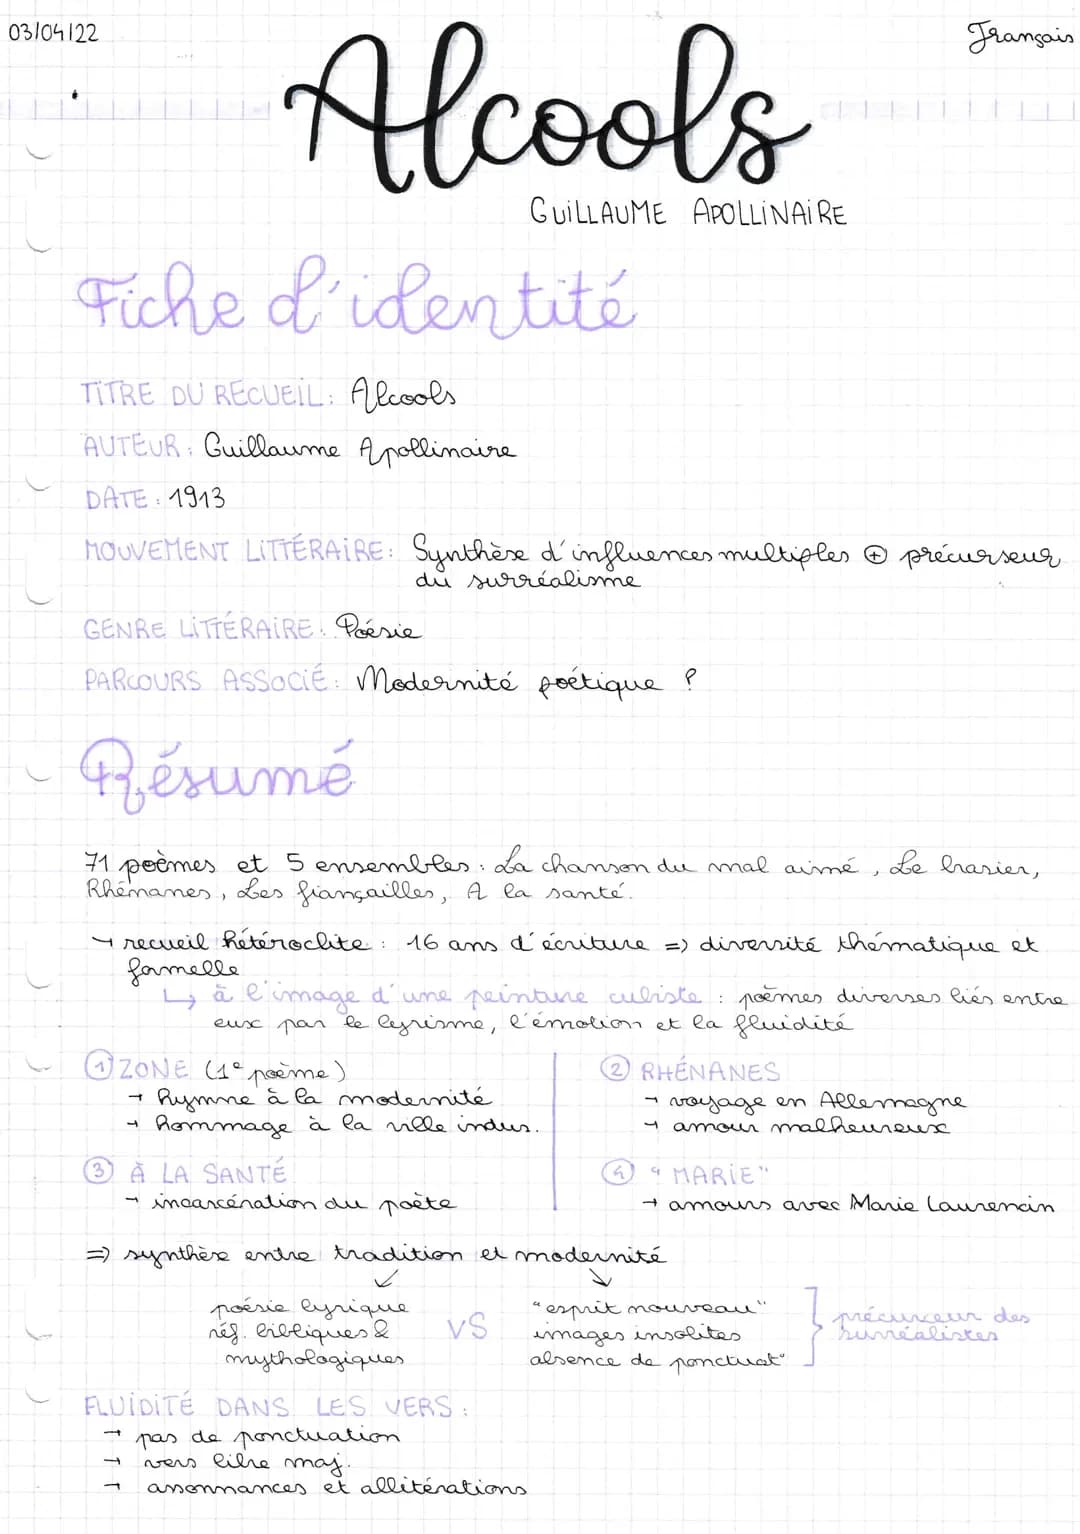 03/04/22
Français
Alcools
GUILLAUME APOLLINAIRE
Fiche d'identité
TITRE DU RECUEIL : Alcools
AUTEUR : Guillaume Apollinaire
DATE : 1913
MOUVEMENT LITTÉRAIRE : Synthèse d'influences multiples ⊕ précurseur
du surréalisme
GENRE LITTÉRAIRE : Poésie
PARCOURS ASSOCIÉ : Modernité poétique ?
Résumé
71 poèmes et 5 ensembles : La chanson du mal aimé, Le brasier,
Rhénanes, Les fiançailles, A la santé.
→ recueil hétéroclite : 16 ans d'écriture => diversité thématique et
formelle
↳ à l'image d'une peinture cubiste : poèmes diverses liés entre
eux par le lyrisme, l'émotion et la fluidité
① ZONE (1e poème)
→ hymne à la modernité
→ hommage à la ville indus.
② RHÉNANES
→ voyage en Allemagne
→ amour malheureux
③ À LA SANTÉ
→ incarcération du poète
④ "MARIE"
→ amours avec Marie Laurencin
=> synthèse entre tradition et modernité
poésie lyrique
réf. bibliques &
mythologiques
VS
"esprit nouveau"
images insolites
absence de ponctuat°
précurceur des
surréalistes
FLUIDITÉ DANS LES VERS :
→ pas de ponctuation
→ vers libre maj.
→ assonnances et allitérations